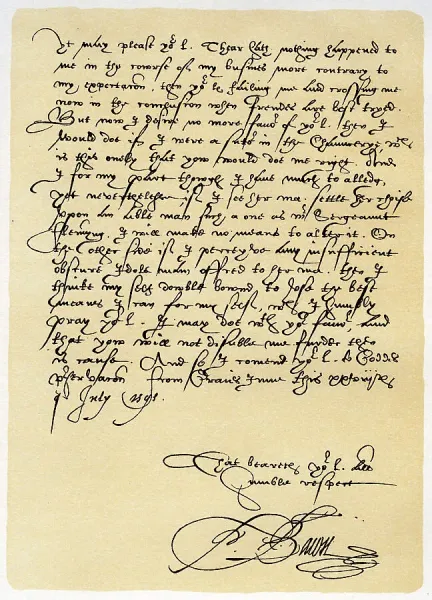 It may please yor L. Thear hath nothing happened to
me in the cowrse of my busines more contrary to
my expectacon, then yor L. failing me and crossing me
now in the conclusion when frendes are best tryed.
But now I desire no more favor of yor L. then I
would doe if I were a sutor in the Chauncery; wch
is this onely that yow would doe me right. And
I for my part though I have much to alledg,
yet neverthelesse if I see her ma. settle her choise
upon an able man such a one as mr Sergeaunt
Flemyng, I will make no meanes to alter it. On
the other side if I perceyve any insufficient
obscure Idole man offred to her ma. then I
thinke my self double bownd to use the best
meanes I can for my self, wch I humbly
pray yor L. I may doe wth yor favor, and
that yow will not disable me furder then
is cause. And so I comend yor L. to Godds
preservacon From Graies Inne this
of July 1595.
That beareth yor L. all
humble respect
Fr. Bacon